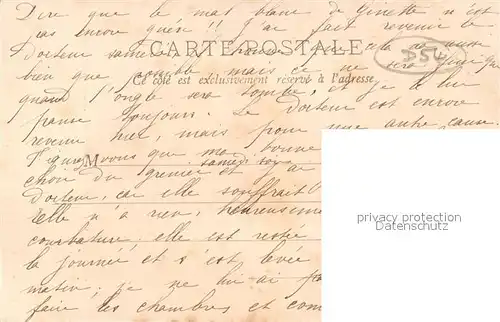 Dire que le mal blanc de Ginette n'est
pas encore guéri!! J'ai fait revenir le
CARTE POSTALE
D54
Docteur samedi
bien que possible mais ce ne sera
Ce côté est exclusivement réservé à l'adresse
quand l'ongle sera tombé, et je le lui
panse toujours. Le Docteur est encore
revenu hier, mais pour une autre cause.
M
Figurez vous que ma bonne
samedi soir
du grenier et j'ai
Docteur, car elle souffrait
elle n'a rien, heureusement
courbature. elle est restée
la journée et s'est levée
matin; je ne lui ai
faire les chambres et
privacy protection
Datenschutz